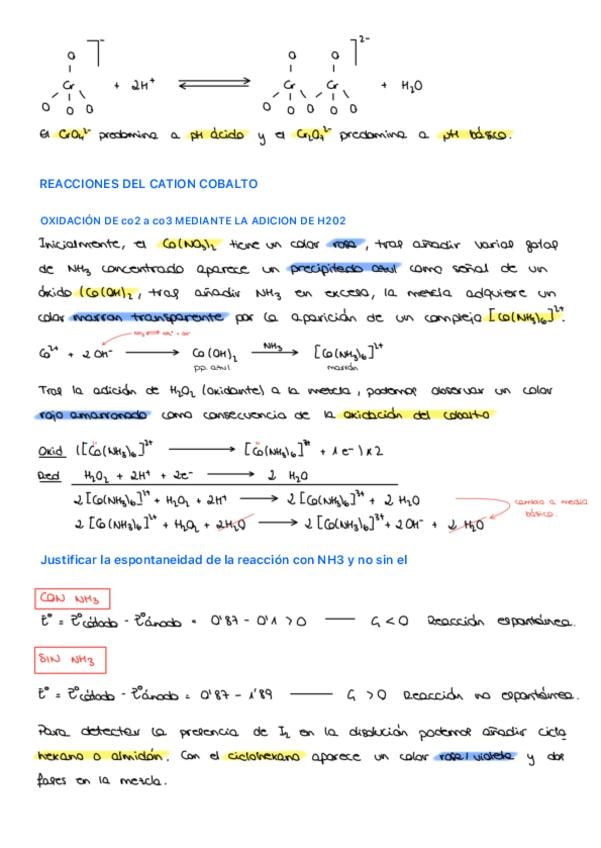 O ⁻ O O 2-
Cr + 2H⁺ ⇌ Cr Cr + H₂O
O O O O O O O
El CrO₄²⁻ predomina a pH ácido y el Cr₂O₇²⁻ predomina a pH básico.
REACCIONES DEL CATION COBALTO
OXIDACIÓN DE co2 a co3 MEDIANTE LA ADICION DE H2O2
Inicialmente, el Co(NO₃)₂ tiene un color rosa, tras añadir varias gotas
de NH₃ concentrado aparece un precipitado azul como señal de un
óxido (Co(OH)₂, tras añadir NH₃ en exceso, la mezcla adquiere un
color marrón transparente por la aparición de un complejo [Co(NH₃)₆]²⁺.
Co²⁺ + 2 OH⁻ → Co(OH)₂ NH₃→ [Co(NH₃)₆]²⁺
pp. azul marrón
Tras la adición de H₂O₂ (oxidante) a la mezcla, podemos observar un color
rojo amarronado como consecuencia de la oxidación del cobalto
Oxid ([Co(NH₃)₆]²⁺ → [Co(NH₃)₆]³⁺ + 1e⁻) x2
Red H₂O₂ + 2H⁺ + 2e⁻ → 2 H₂O
2[Co(NH₃)₆]²⁺ + H₂O₂ + 2H⁺ → 2[Co(NH₃)₆]³⁺ + 2 H₂O
cambio a medio
básico.
2[Co(NH₃)₆]²⁺ + H₂O₂ + 2H₂O → 2[Co(NH₃)₆]³⁺ + 2OH⁻ + 2 H₂O
Justificar la espontaneidad de la reacción con NH3 y no sin el
CON NH₃
E° = E°cátodo - E°ánodo = 0'87 - 0'1 > 0 — G < 0 Reacción espontánea.
SIN NH₃
E° = E°cátodo - E°ánodo = 0'87 - 1'89 — G > 0 Reacción no espontánea.
Para detectar la presencia de I₂ en la disolución podemos añadir ciclo
hexano o almidón. Con el ciclohexano aparece un color rosa/violeta y dos
fases en la mezcla.